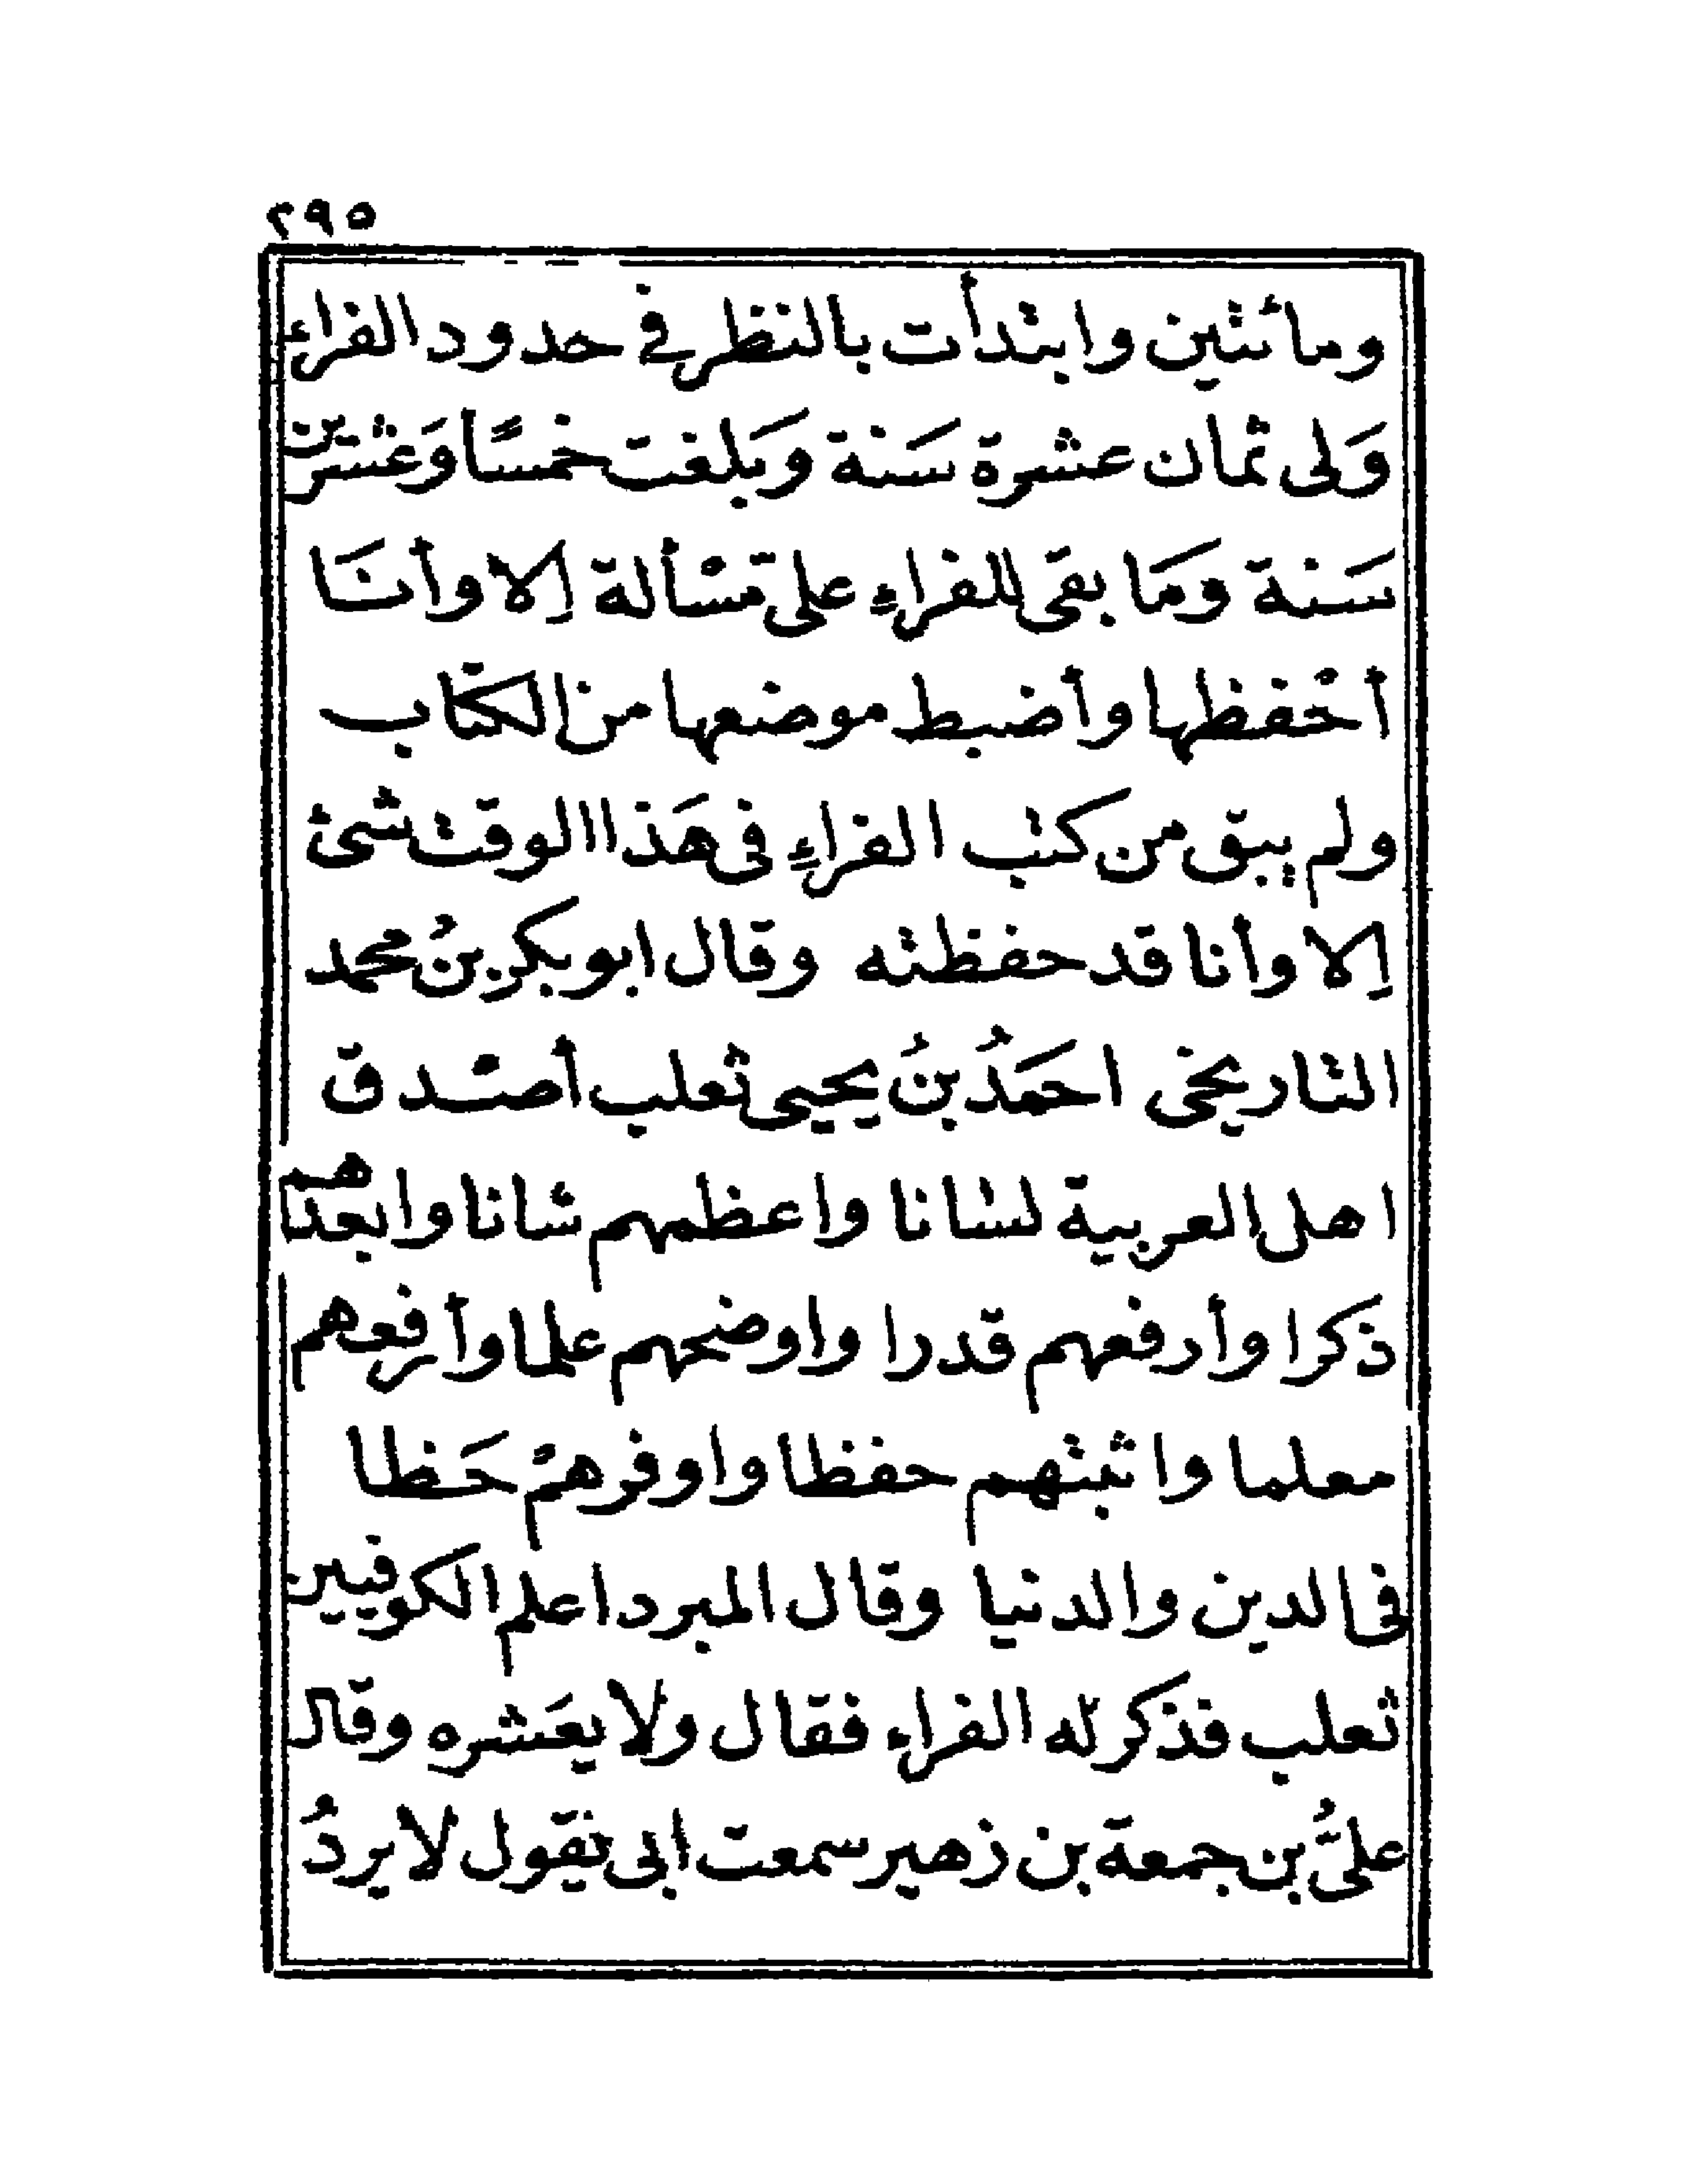 ٢٩٥
ومائتين وابتدأت بالنظر في حدود الفراء
وَلى ثمان عشرة سَنة وَبلغت خمسًا وَعشرين
سَنة وَمَا بقى للفراءِ على مْسألة إلا وأنَا
أحْفظها وأضبط موضعها من الكتاب
ولم يبق من كتب الفراءِ فى هَذا الوقت شئ
إلا وأنا قد حفظته وقال ابو بكرِ بنُ محمد
التاريخى احمَدُ بنُ يحيى ثعلب أصْدق
اهل العربية لسانا واعظمهم شانا وابعدهم
ذكرا وأرفعهم قدرا واوضحهم علما وأرفعهم
معلما واثبتهم حفظا واوفرهمْ حَظا
فى الدين والدنيا وقال المبرد اعلم الكوفيين
ثعلب فذكر له الفراء فقال ولا يعَشره وقال
علىُّ بن جمعة بن زهير سمعت ابى يقول لا يردُ